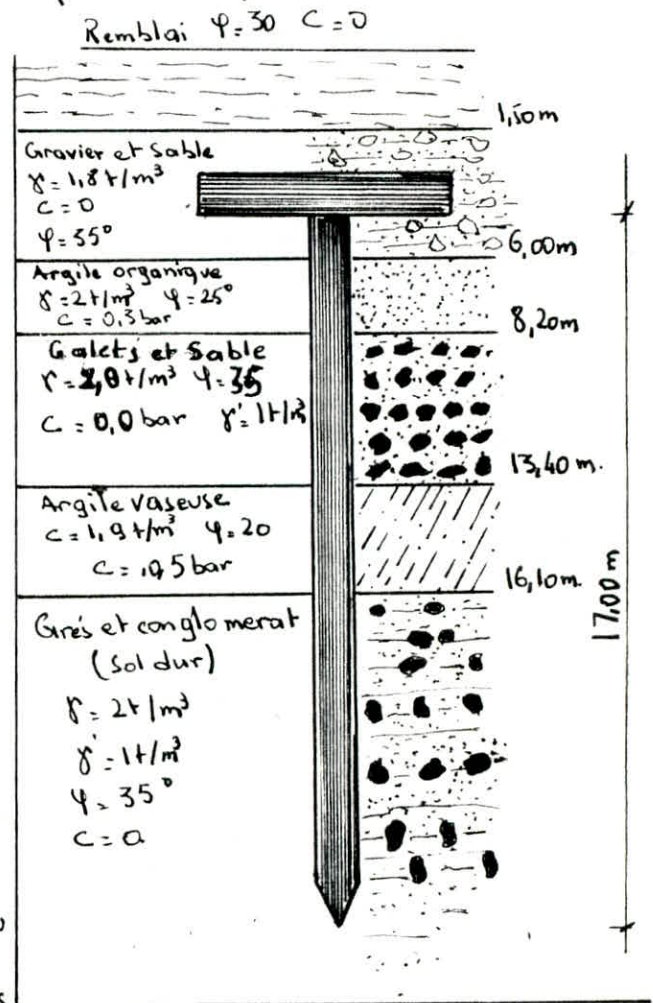 Remblai φ=30 C=0
1,50m
Gravier et Sable
γ=1,8t/m³
C=0
φ=35°
6,00m
Argile organique
γ=2t/m³ φ=25°
C=0,3bar
8,20m
Galets et Sable
γ=2,0t/m³ φ=35
C=0,0bar γ'=1t/m³
13,40m.
Argile vaseuse
C=1,9t/m³ φ=20
C=0,5bar
16,10m.
Grés et conglomerat
(Sol dur)
γ=2t/m³
γ'=1t/m³
φ=35°
C=0
17,00m